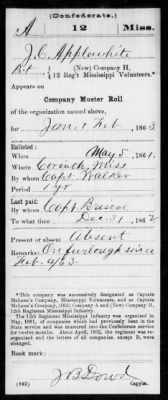 (Confederate.)
A 12 Miss.
J. C. Applewhite
Pvt., (New) Company H,
12 Reg't Mississippi Volunteers.*
Appears on
Company Muster Roll
of the organization named above,
for Jan & Feb, 1863
Enlisted:
When May 5, 1861.
Where Corinth Miss
By whom Capt Walker
Period 1 yr
Last paid:
By whom Capt
To what time Dec 31, 1862
Present or absent Absent
Remarks: On furlough since
Feb. 4/63.
*This company was successively designated as Captain
McLean's Company, Mississippi Volunteers, and as Captain
McLean's Company, (Old) Company A and (New) Company H,
12th Regiment Mississippi Infantry.
The 12th Regiment Mississippi Infantry was organized in
May, 1861, of companies which had previously been in the
State service and was mustered into the Confederate service
for twelve months. About April, 1862, the regiment was re-
organized and the letters of all companies, except D, were
changed.
Book mark:
(642) J B Dowd
Copyist.